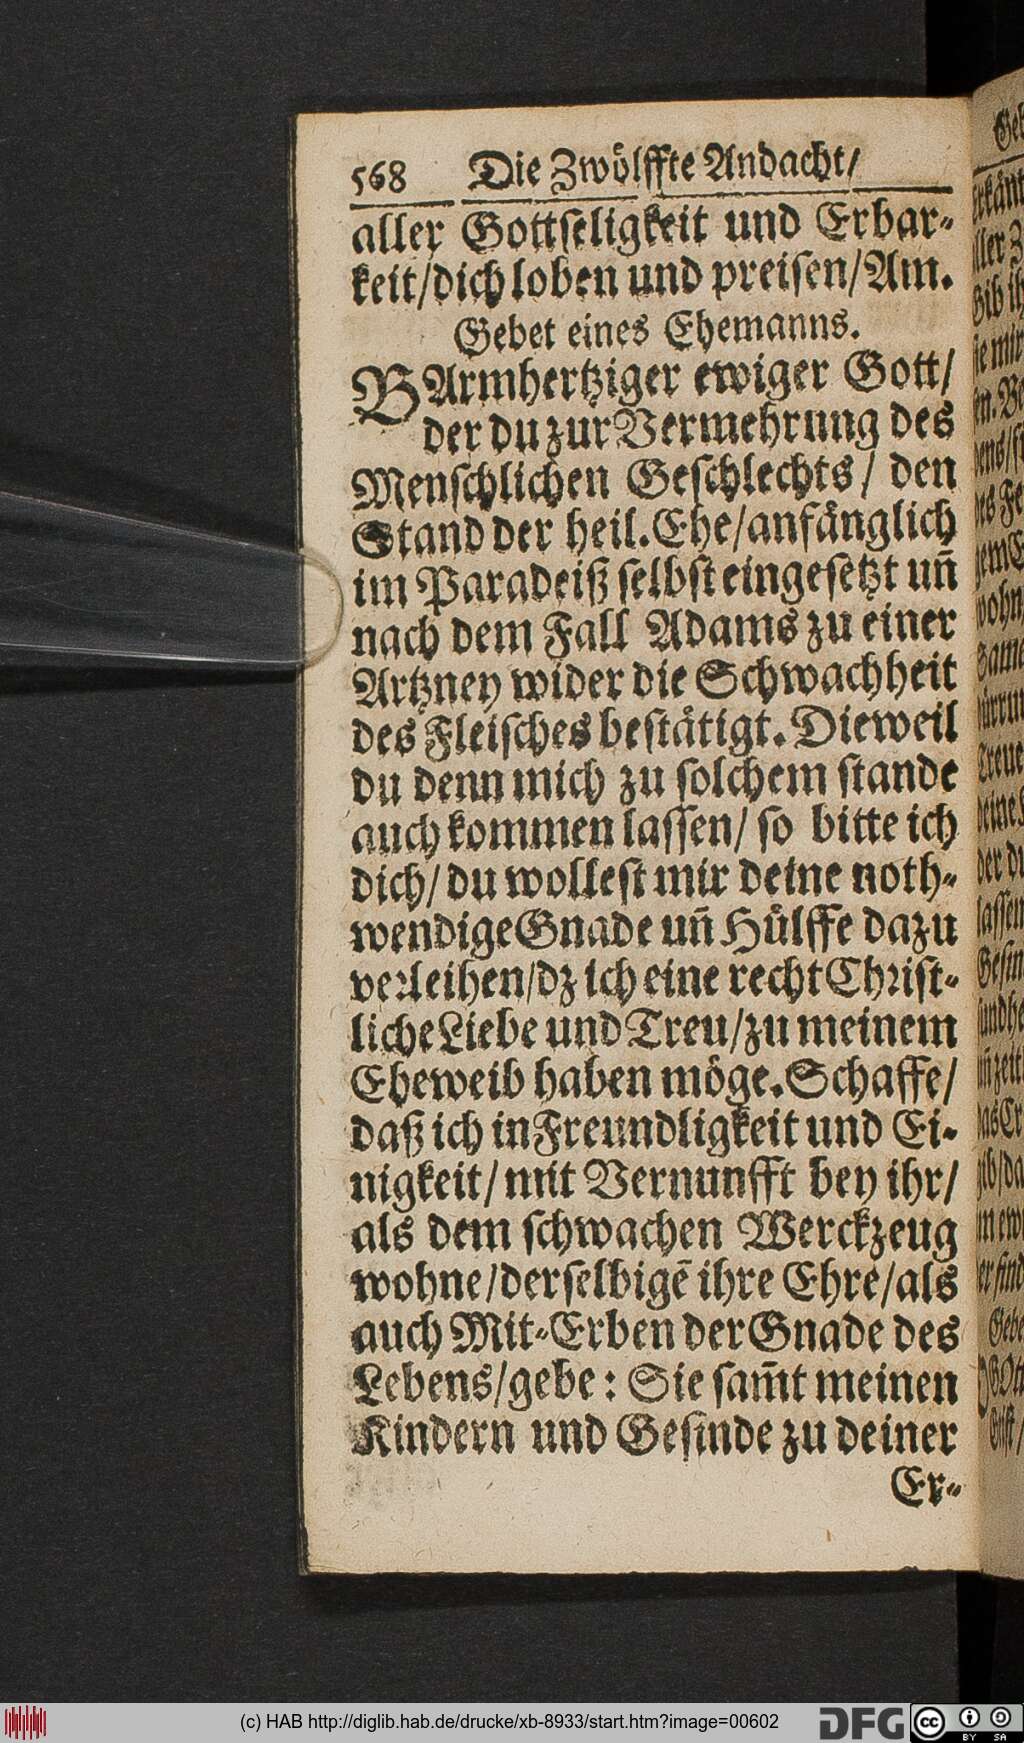 568 Die Zwölffte Andacht/
aller Gottseligkeit und Erbar-
keit/dich loben und preisen/Am.
Gebet eines Ehemanns.
BArmhertziger ewiger Gott/
der du zur Vermehrung des
Menschlichen Geschlechts/ den
Stand der heil. Ehe/anfänglich
im Paradeiß selbst eingesetzt uñ
nach dem Fall Adams zu einer
Artzney wider die Schwachheit
des Fleisches bestätigt. Dieweil
du denn mich zu solchem stande
auch kommen lassen/ so bitte ich
dich/ du wollest mir deine noth-
wendige Gnade uñ Hülffe dazu
verleihen/dz ich eine recht Christ-
liche Liebe und Treu/zu meinem
Eheweib haben möge. Schaffe/
daß ich in Freundligkeit und Ei-
nigkeit/ mit Vernunfft bey ihr/
als dem schwachen Werckzeug
wohne/derselbigē ihre Ehre/als
auch Mit-Erben der Gnade des
Lebens/gebe: Sie sam̃t meinen
Kindern und Gesinde zu deiner
Er-
(c) HAB http://diglib.hab.de/drucke/xb-8933/start.htm?image=00602
DFG
cc BY SA